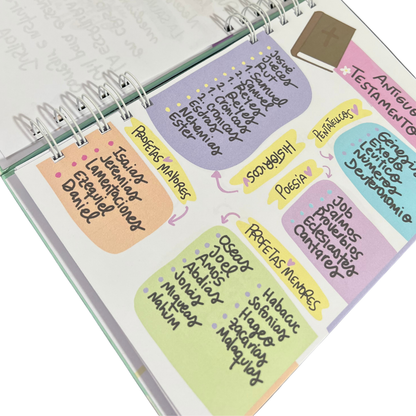 ANTIGUO
TESTAMENTO
PENTATEUCOS
Levítico
Deuteronomio
HISTÓRICOS
Josué
Jueces
Rut
1. Samuel
2. Samuel
1. Reyes
2. Reyes
1. Crónicas
2. Crónicas
Esdras
Nehemías
Ester
POESÍA
Job
Salmos
Proverbios
Eclesiastés
Cantares
PROFETAS MAYORES
Isaías
Jeremías
Lamentaciones
Ezequiel
Daniel
PROFETAS MENORES
Oseas
Joel
Amós
Abdías
Jonás
Miqueas
Nahúm
Habacuc
Sofonías
Hageo
Zacarías
Malaquías